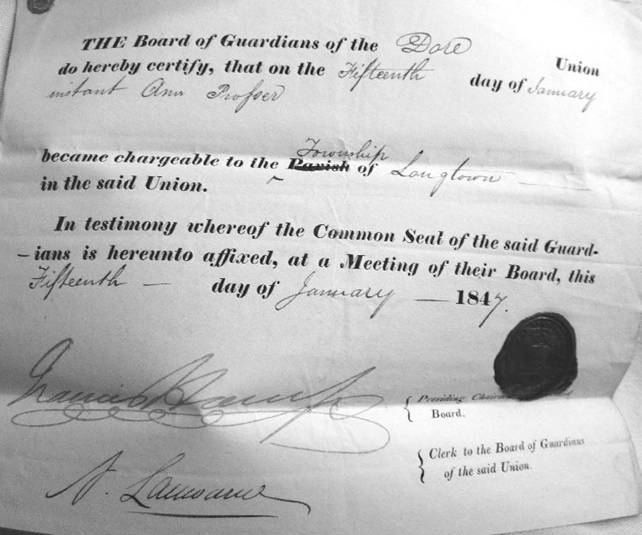 THE Board of Guardians of the Dore Union
do hereby certify, that on the Fifteenth day of January
instant Ann Prosser
became chargeable to the Township Parish of Longtown
in the said Union.
In testimony whereof the Common Seal of the said Guard-
-ians is hereunto affixed, at a Meeting of their Board, this
Fifteenth day of January 1847.
Presiding
Board.
Clerk to the Board of Guardians
of the said Union.